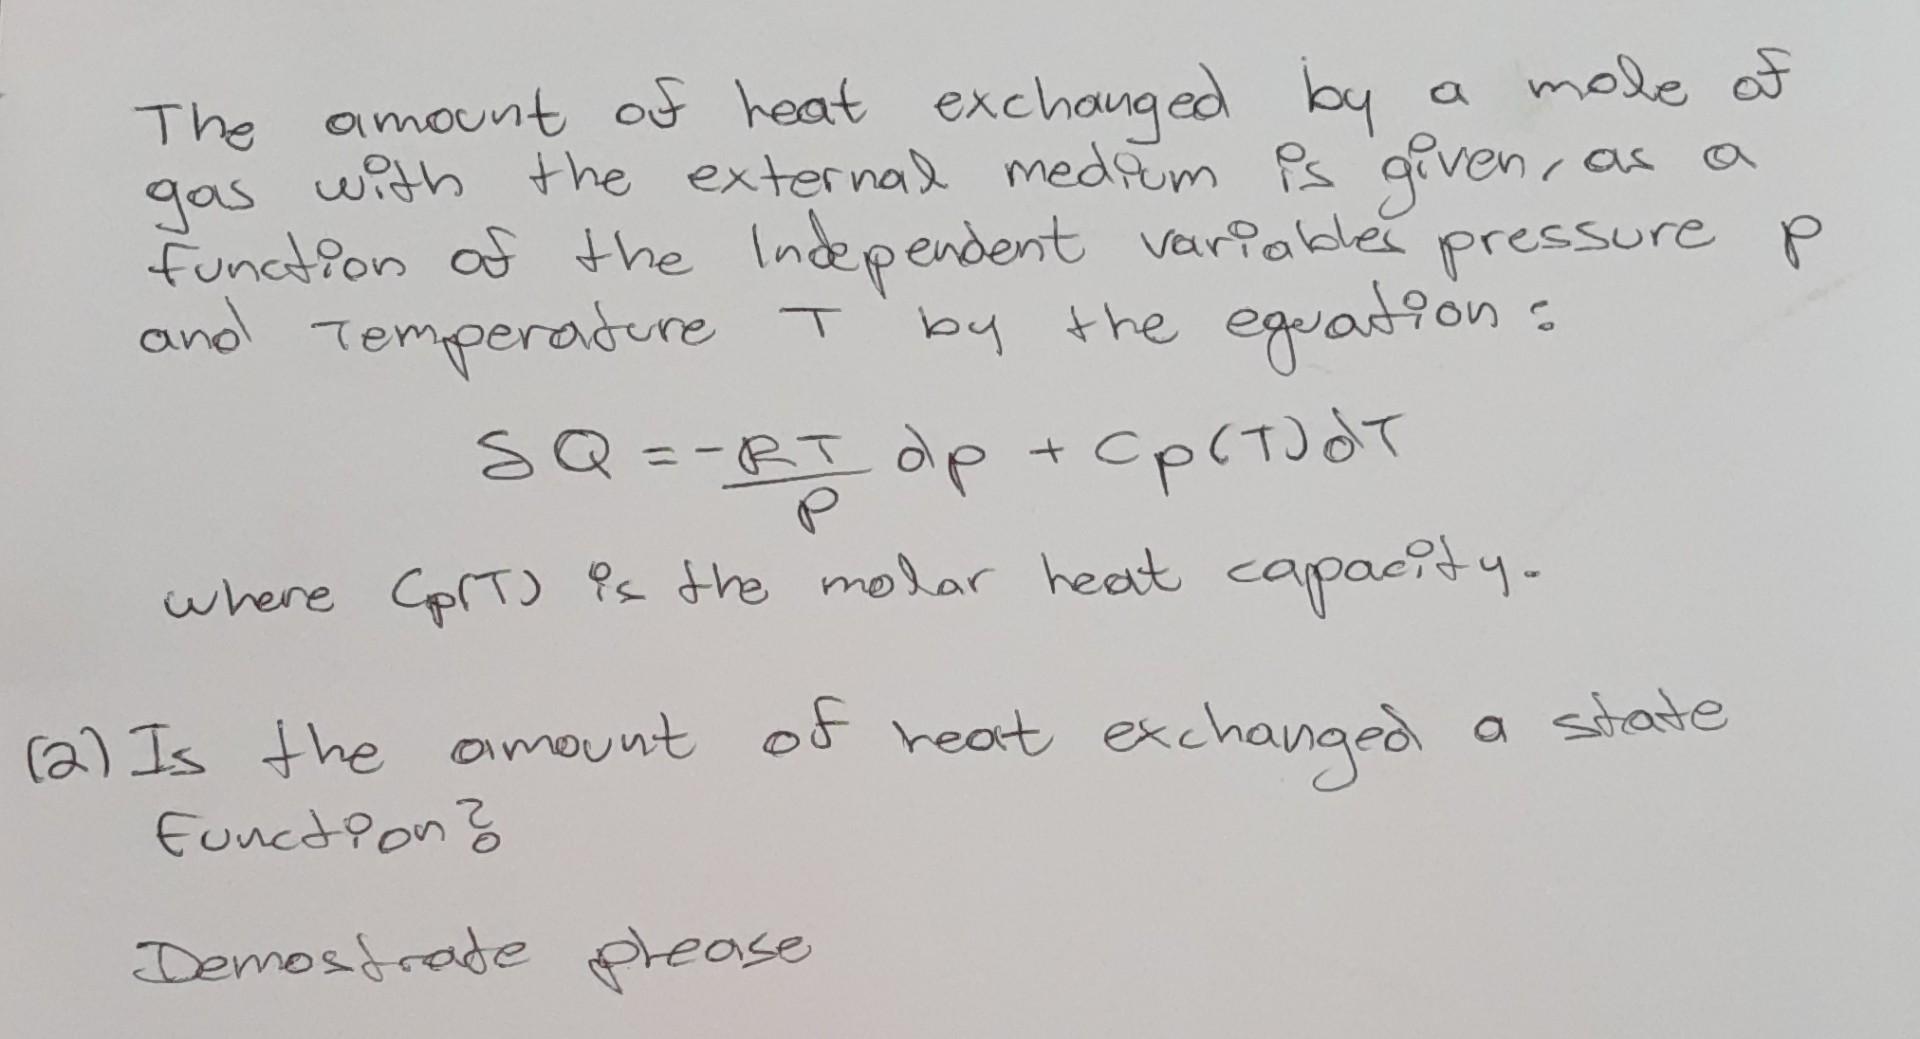 The amount of heat exchanged by a mole of
gas with the external medium is given, as a
function of the Independent variables pressure p
and Temperature T by the equation:
δQ = -RT/P dp + Cp(T)dT
where Cp(T) is the molar heat capacity.
(2) Is the amount of heat exchanged a state
Function?
Demostrate please